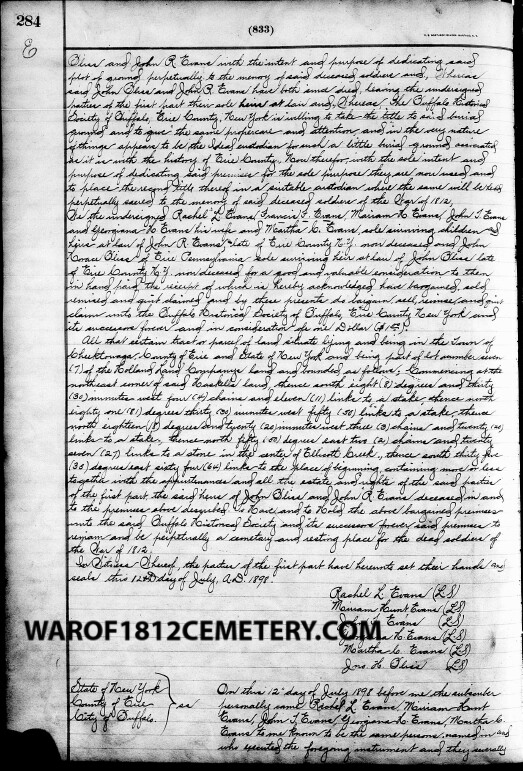 284
(833)
E
Bliss and John R. Evans with the intent and purpose of dedicating said
plot of ground perpetually to the memory of said deceased soldiers and, Whereas
said John Bliss and John R. Evans have both since died, leaving the undersigned
parties of the first part their sole heirs at law and, Whereas, The Buffalo Historical
Society of Buffalo, Erie County, New York is willing to take the title to said burial
ground and to give the same proper care and attention, and in the very nature
of things appears to be the ideal custodian for such a little burial ground associated
as it is with the history of Erie County. Now therefor, with the sole intent and
purpose of dedicating said premises for the sole purpose they are now used and
to place the record title thereof in a suitable custodian where the same will be held
perpetually sacred to the memory of said deceased soldiers of the War of 1812,
We the undersigned Rachel L. Evans, Francis F. Evans, Miriam H. Evans, John T. Evans
and Georgiana H. Evans his wife and Martha C. Evans, sole surviving children and
heirs at law of John R. Evans, late of Erie County N.Y. now deceased and John
Horace Bliss of Erie Pennsylvania sole surviving heir at law of John Bliss late
of Erie County N.Y. now deceased for a good and valuable consideration to them
in hand paid the receipt of which is hereby acknowledged have bargained, sold
remised and quit claimed and by these presents do bargain, sell, remise, and quit
claim unto the Buffalo Historical Society of Buffalo, Erie County New York and
its successors forever and in consideration of one Dollar
All that certain tract or parcel of land situate lying and being in the Town of
Cheektowaga, County of Erie and State of New York and being part of lot number seven
(7) of the Holland Land Companys land and bounded as follows; Commencing at the
northeast corner of said land, thence south eight (8) degrees and thirty
(30) minutes west four (4) chains and eleven (11) links to a stake, thence north
eighty one (81) degrees thirty (30) minutes west fifty (50) links to a stake, thence
north eighteen (18) degrees and twenty (20) minutes west three (3) chains and twenty (20)
links to a stake, thence north fifty (50) degrees east two (2) chains and twenty
seven (27) links to a stone in the center of Ellicott Creek, thence south thirty five
(35) degrees east sixty four (64) links to the place of beginning, containing more or less
together with the appurtenances and all the estate and rights of the said parties
of the first part, the said heirs of John Bliss and John R. Evans deceased in and
to the premises above described To Have and to Hold the above bargained premises
unto the said Buffalo Historical Society and its successors forever said premises to
remain and be perpetually a cemetery and resting place for the dead soldiers of
the War of 1812.
In Witness Whereof, the parties of the first part have hereunto set their hands and
seals this 12th day of July, A.D. 1898.
Rachel L. Evans (LS)
Miriam Hunt Evans (LS)
John T. Evans (LS)
Georgiana H. Evans (LS)
Martha C. Evans (LS)
Jno. H. Bliss (LS)
WAROF1812CEMETERY.COM
State of New York
County of Erie
City of Buffalo.
ss
On this 12th day of July 1898 before me the subscriber
personally came Rachel L. Evans, Miriam Hunt
Evans, John T. Evans, Georgiana H. Evans, Martha C.
Evans to me known to be the same persons named in and
who executed the foregoing instrument and they severally